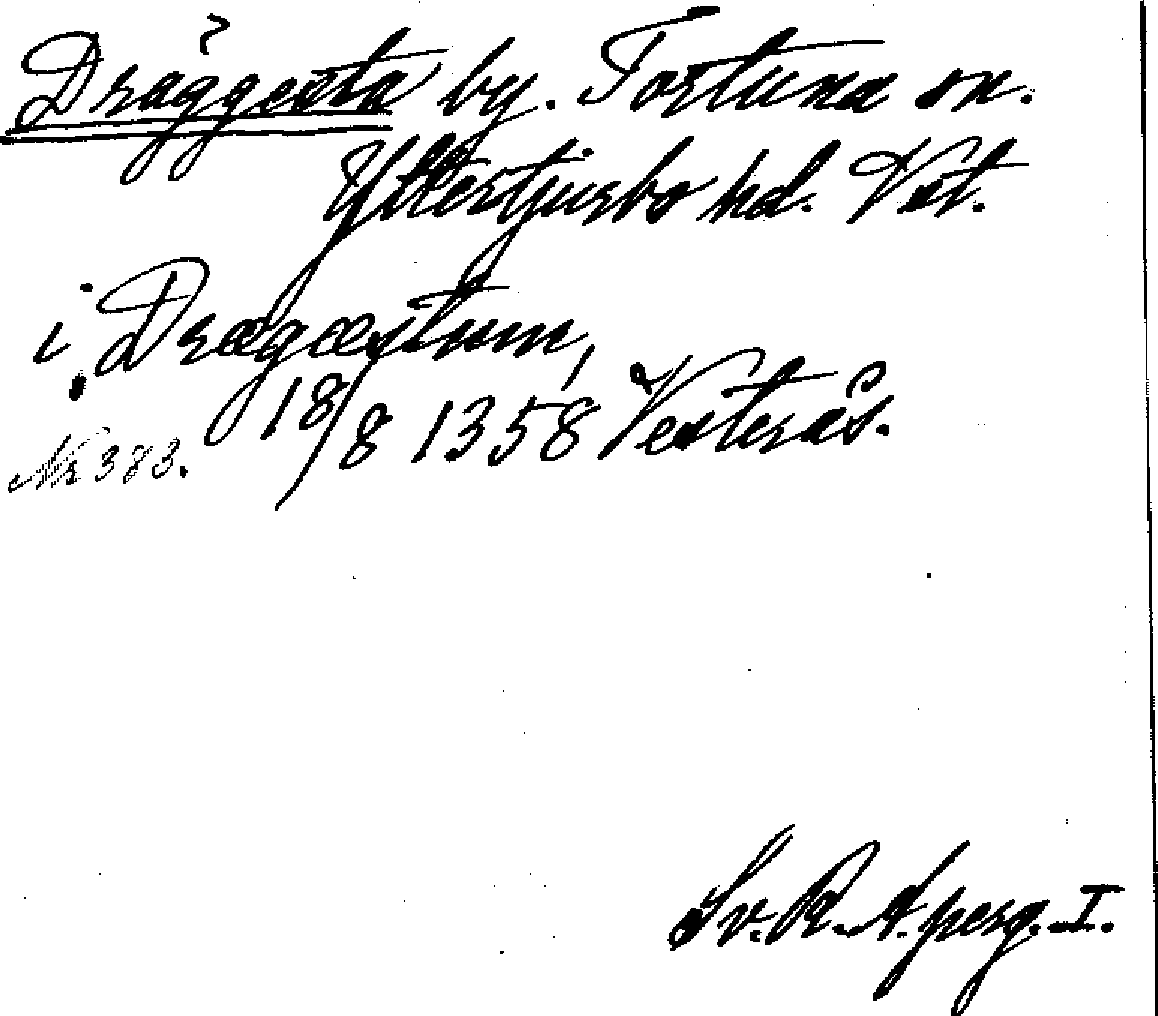 Dräggesta by. Tortuna sn.
Yttertjurbo hd. Vst.
i Drægæstum,
18/8 1358 Vesterås.
Nr 383.
Sv. R. A. perg. I.